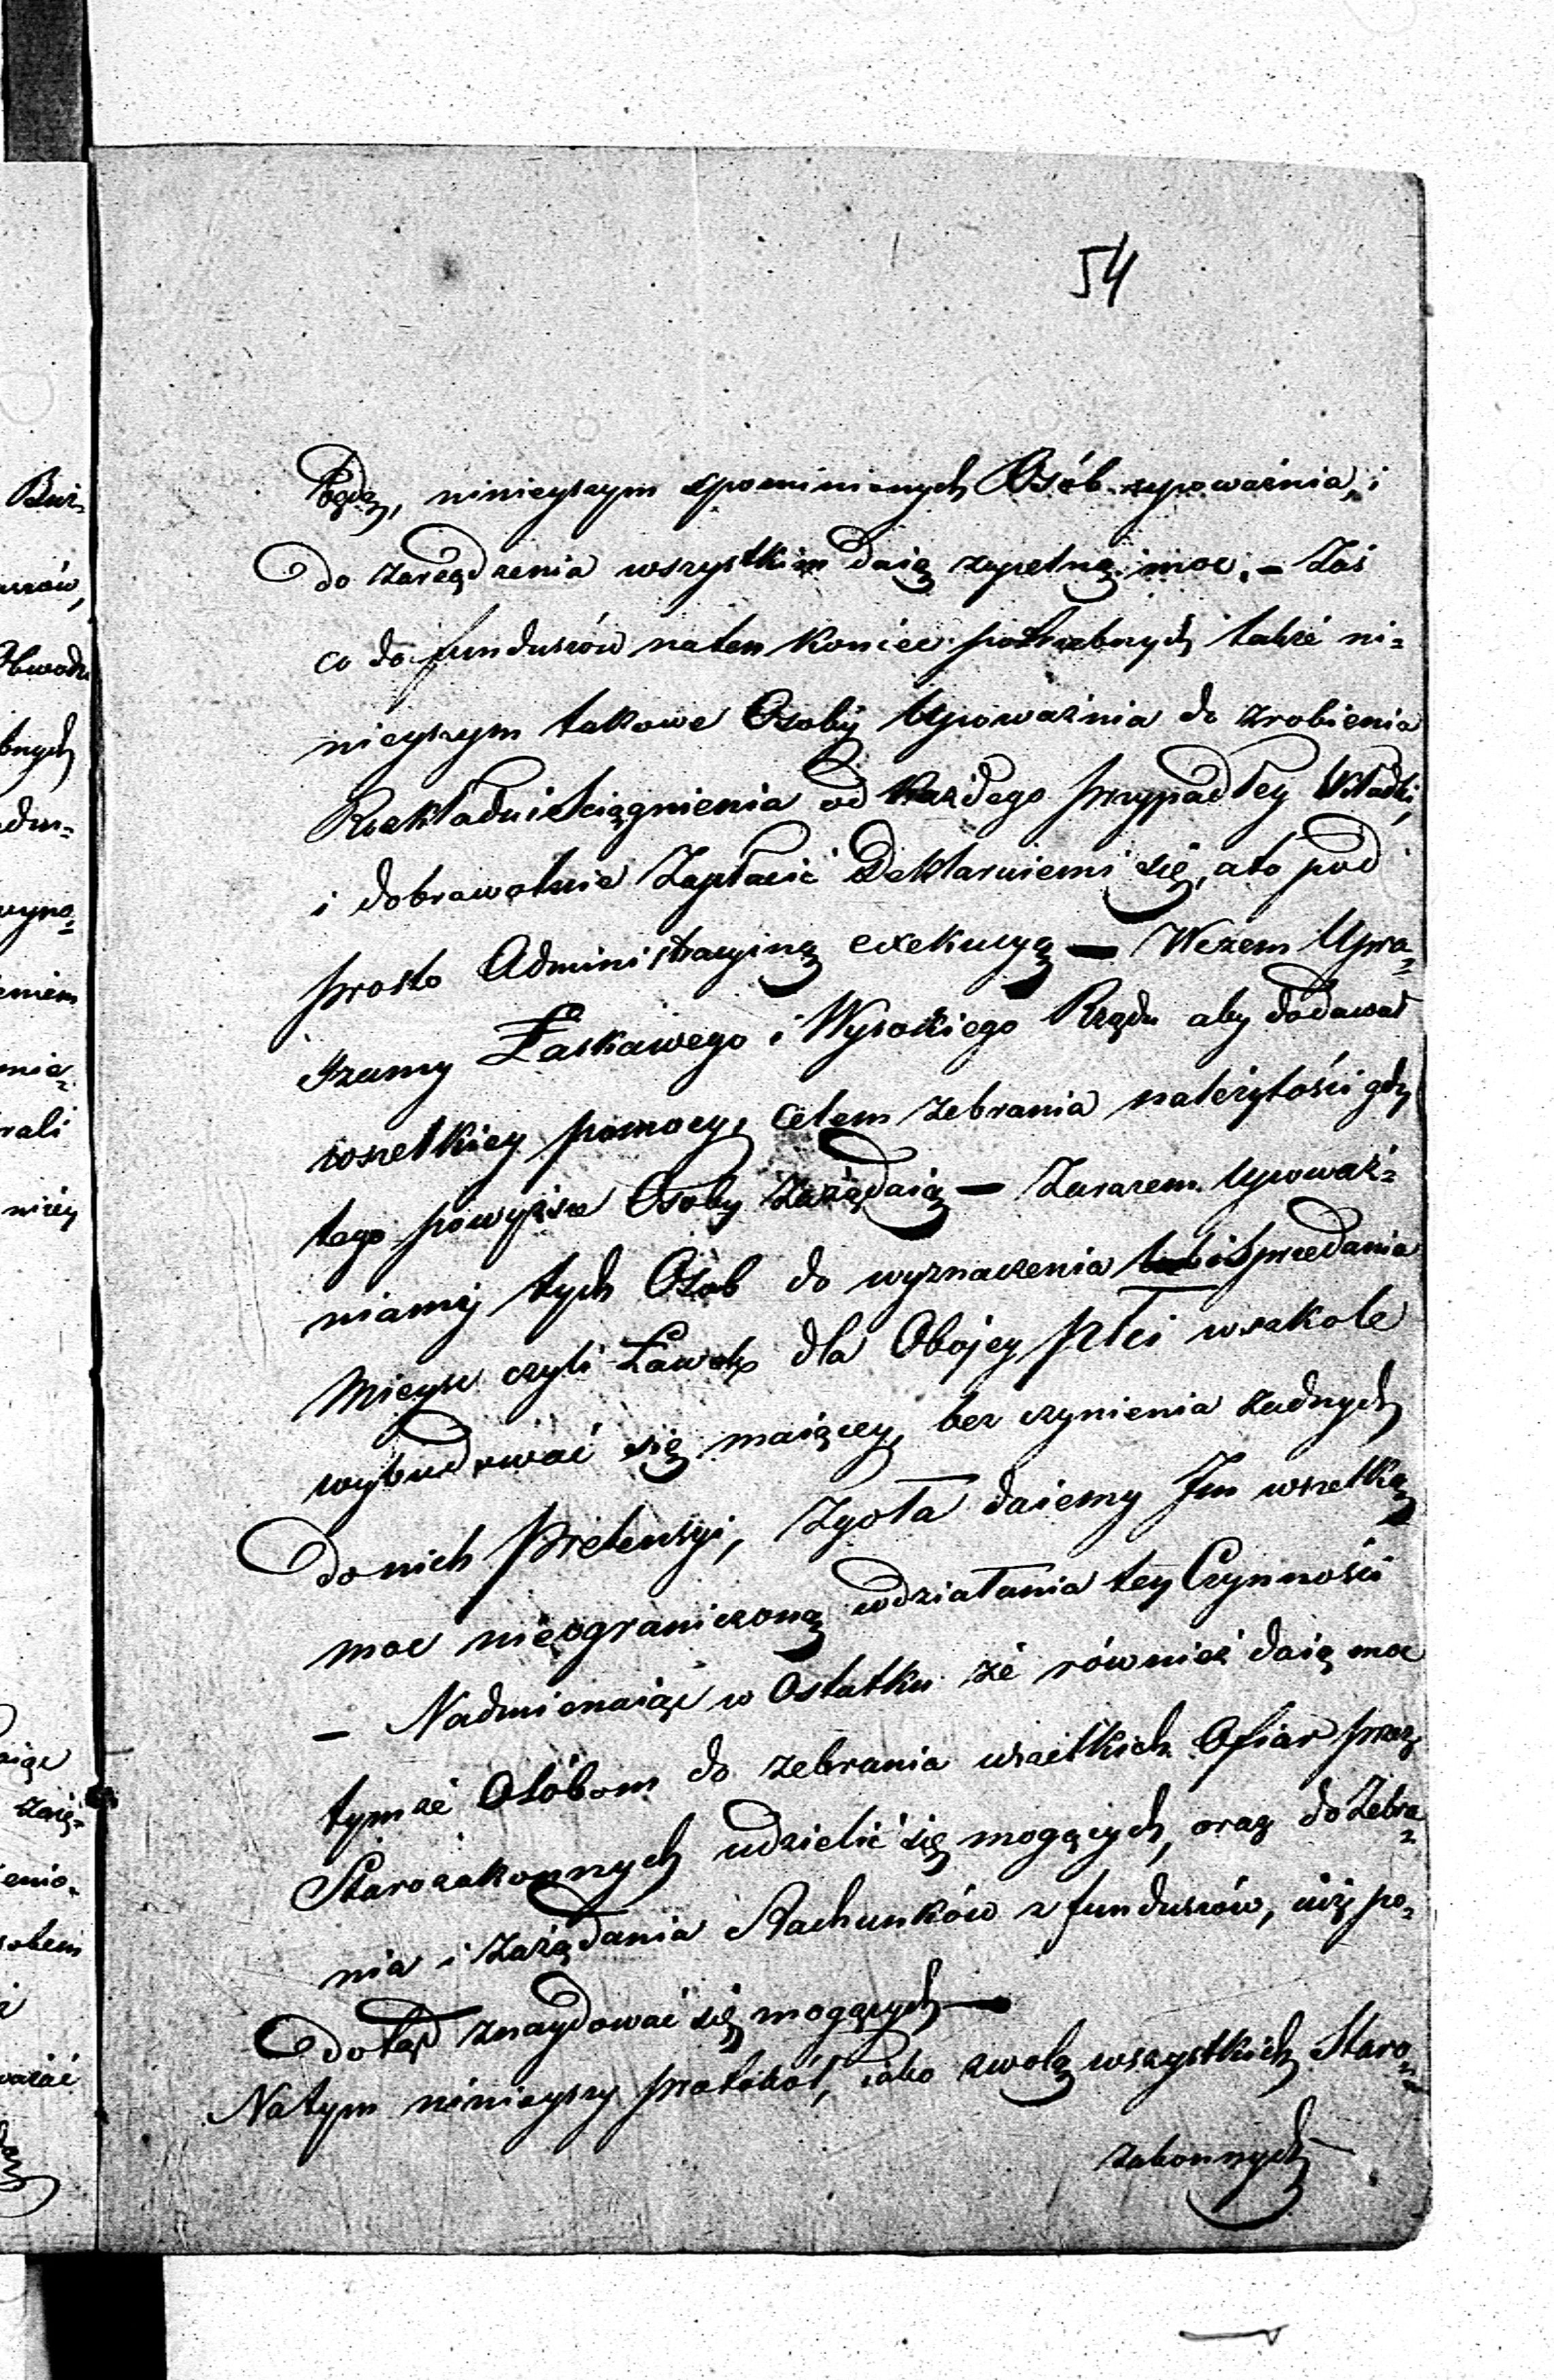 54
będą, ninieyszym spominionych Osób upoważnia, i
do zarządzenia wszystkim daią zupełną moc. – Zaś
co do funduszów naten koniec potrzebnych także ni=
nieyszym takowe Osoby Upoważnia do zrobienia
Rozkładu i ściągnienia od każdego przypadłey Składki,
i dobrowolnie Zapłacić Deklaruiemi się, a to pod
prosto Administracyiną exekucyą — Wczem Upra=
szamy Łaskawego i Wysokiego Rządu aby dodawał
wszelkiey pomocy, celem zebrania należytości gdy
tego powyższe Osoby Zażądaią — Zarazem Upoważ=
niamy tych Osob do wyznaczenia i Sprzedania
Mieysc czyli Ławek dla Obojey płci w szkole
wybudować się maiącey, bez czynienia żadnych
do nich Pretensyi, Zgoła daiemy Im wszelką
moc nieograniczoną w działania tey Czynności
— Nadmienaiąc w Ostatku że również daią moc
tymże Osóbom do zebrania wszelkich Ofiar przez
Starozakonnych udzielić się mogących, oraz do Zebra=
nia i zażądania Rachunków z funduszów, iuż po=
dotąd znaydować się mogących —
Natym ninieyszy protokół, iako zwolą wszystkich Staro=
zakonnych
Buż=
bnych
wyno=
eniem
rali
niżey